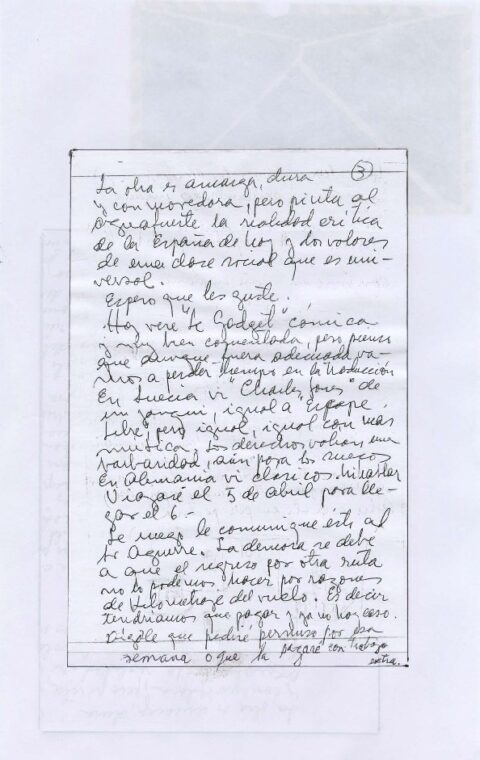 3
La obra es amarga, dura
y conmovedora, pero pinta al
aguafuerte la realidad crítica
de la España de hoy y dos valores
de una clase social que es uni-
versal.
Espero que les guste.
Hoy veré "le Gadget" cómica
y muy bien comentada, pero pienso
que aunque fuera adecuada va-
mos a perder tiempo en la traducción
En Suecia vi "Charles Jones" de
un yanqui, igual a Escape
Libre, pero igual, igual con más
música. Los derechos valían una
barbaridad, aún para los suecos
En Alemania vi clásicos.
Viajaré el 5 de abril para lle-
gar el 6-
Le ruego le comunique ésto al
Sr Aguirre. La demora se debe
a que el regreso por otra ruta
no lo podemos hacer por razones
de kilometraje del vuelo. Es decir
tendríamos que pagar y ya no hay caso.
Dígale que pediré permiso por esa
semana o que la pagaré con trabajo
extra.